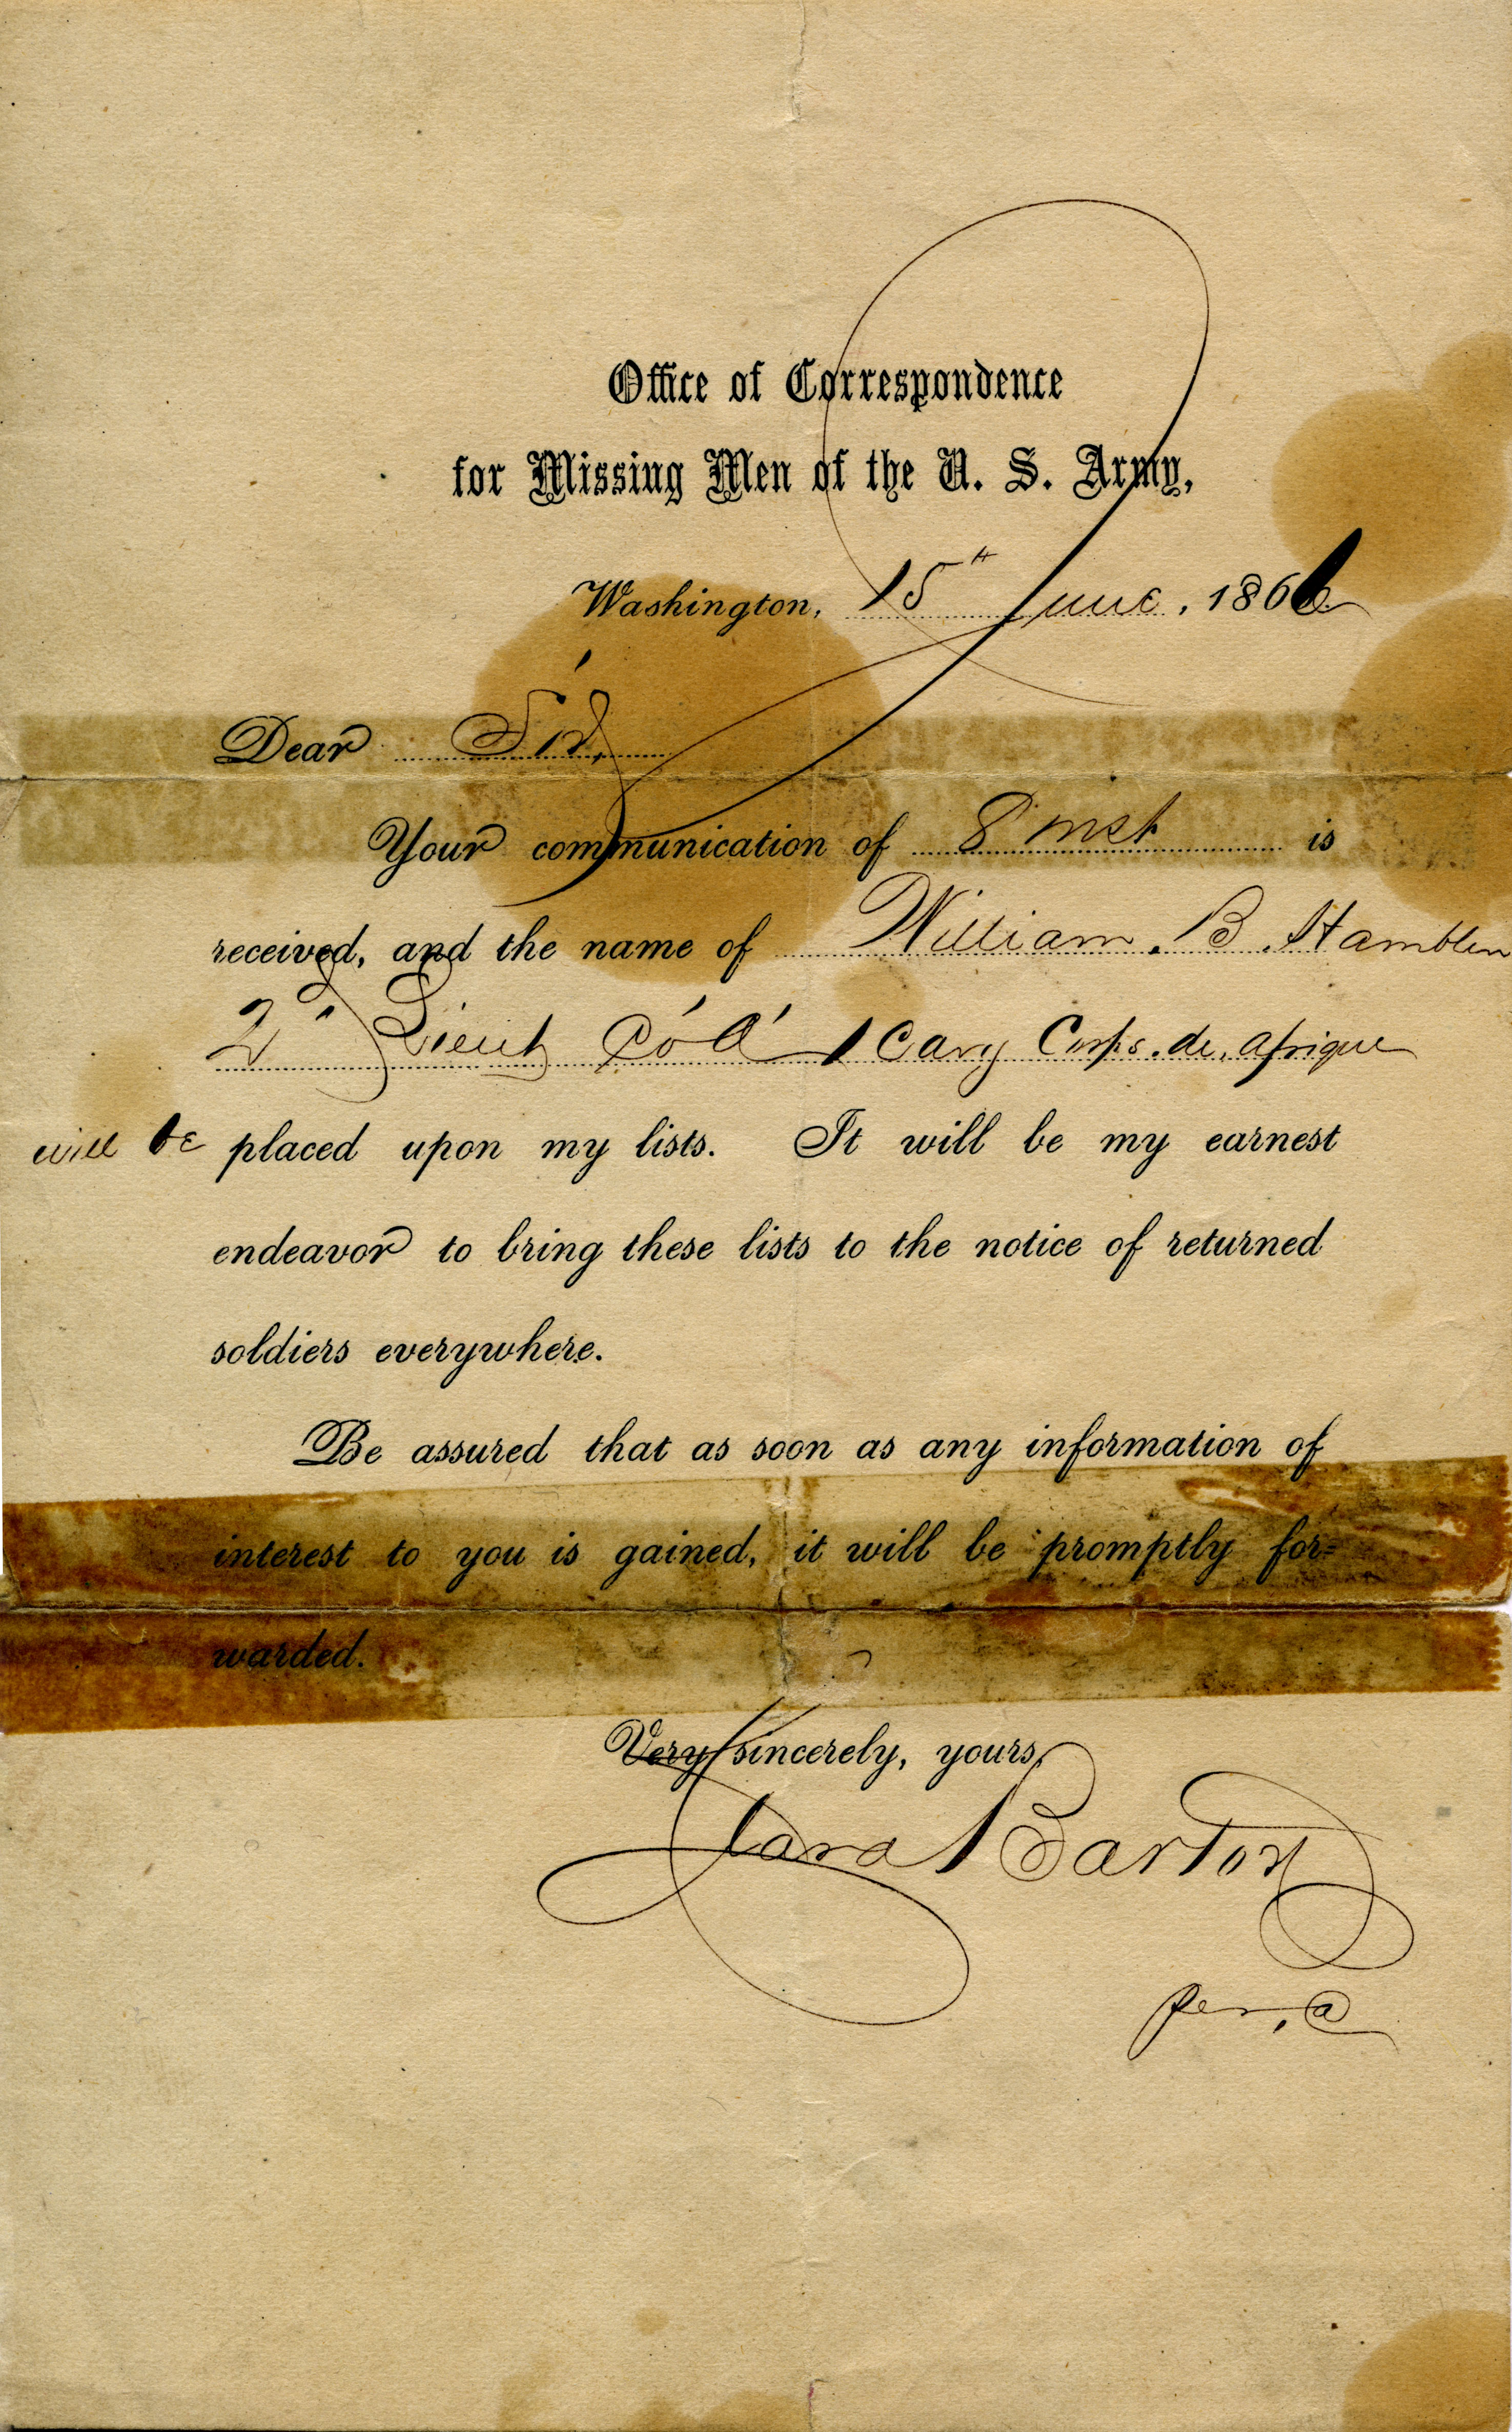 Office of Correspondence
for Missing Men of the U. S. Army,
Washington, 15th June, 1866.
Dear Sir,
Your communication of 8 inst is
received, and the name of William. B. Hamblen
2d Lieut Co A 1 Cavy Corps. de. afrique
will be placed upon my lists. It will be my earnest
endeavor to bring these lists to the notice of returned
soldiers everywhere.
Be assured that as soon as any information of
interest to you is gained, it will be promptly for=
warded.
Very sincerely, yours,
Clara Barton
per, a